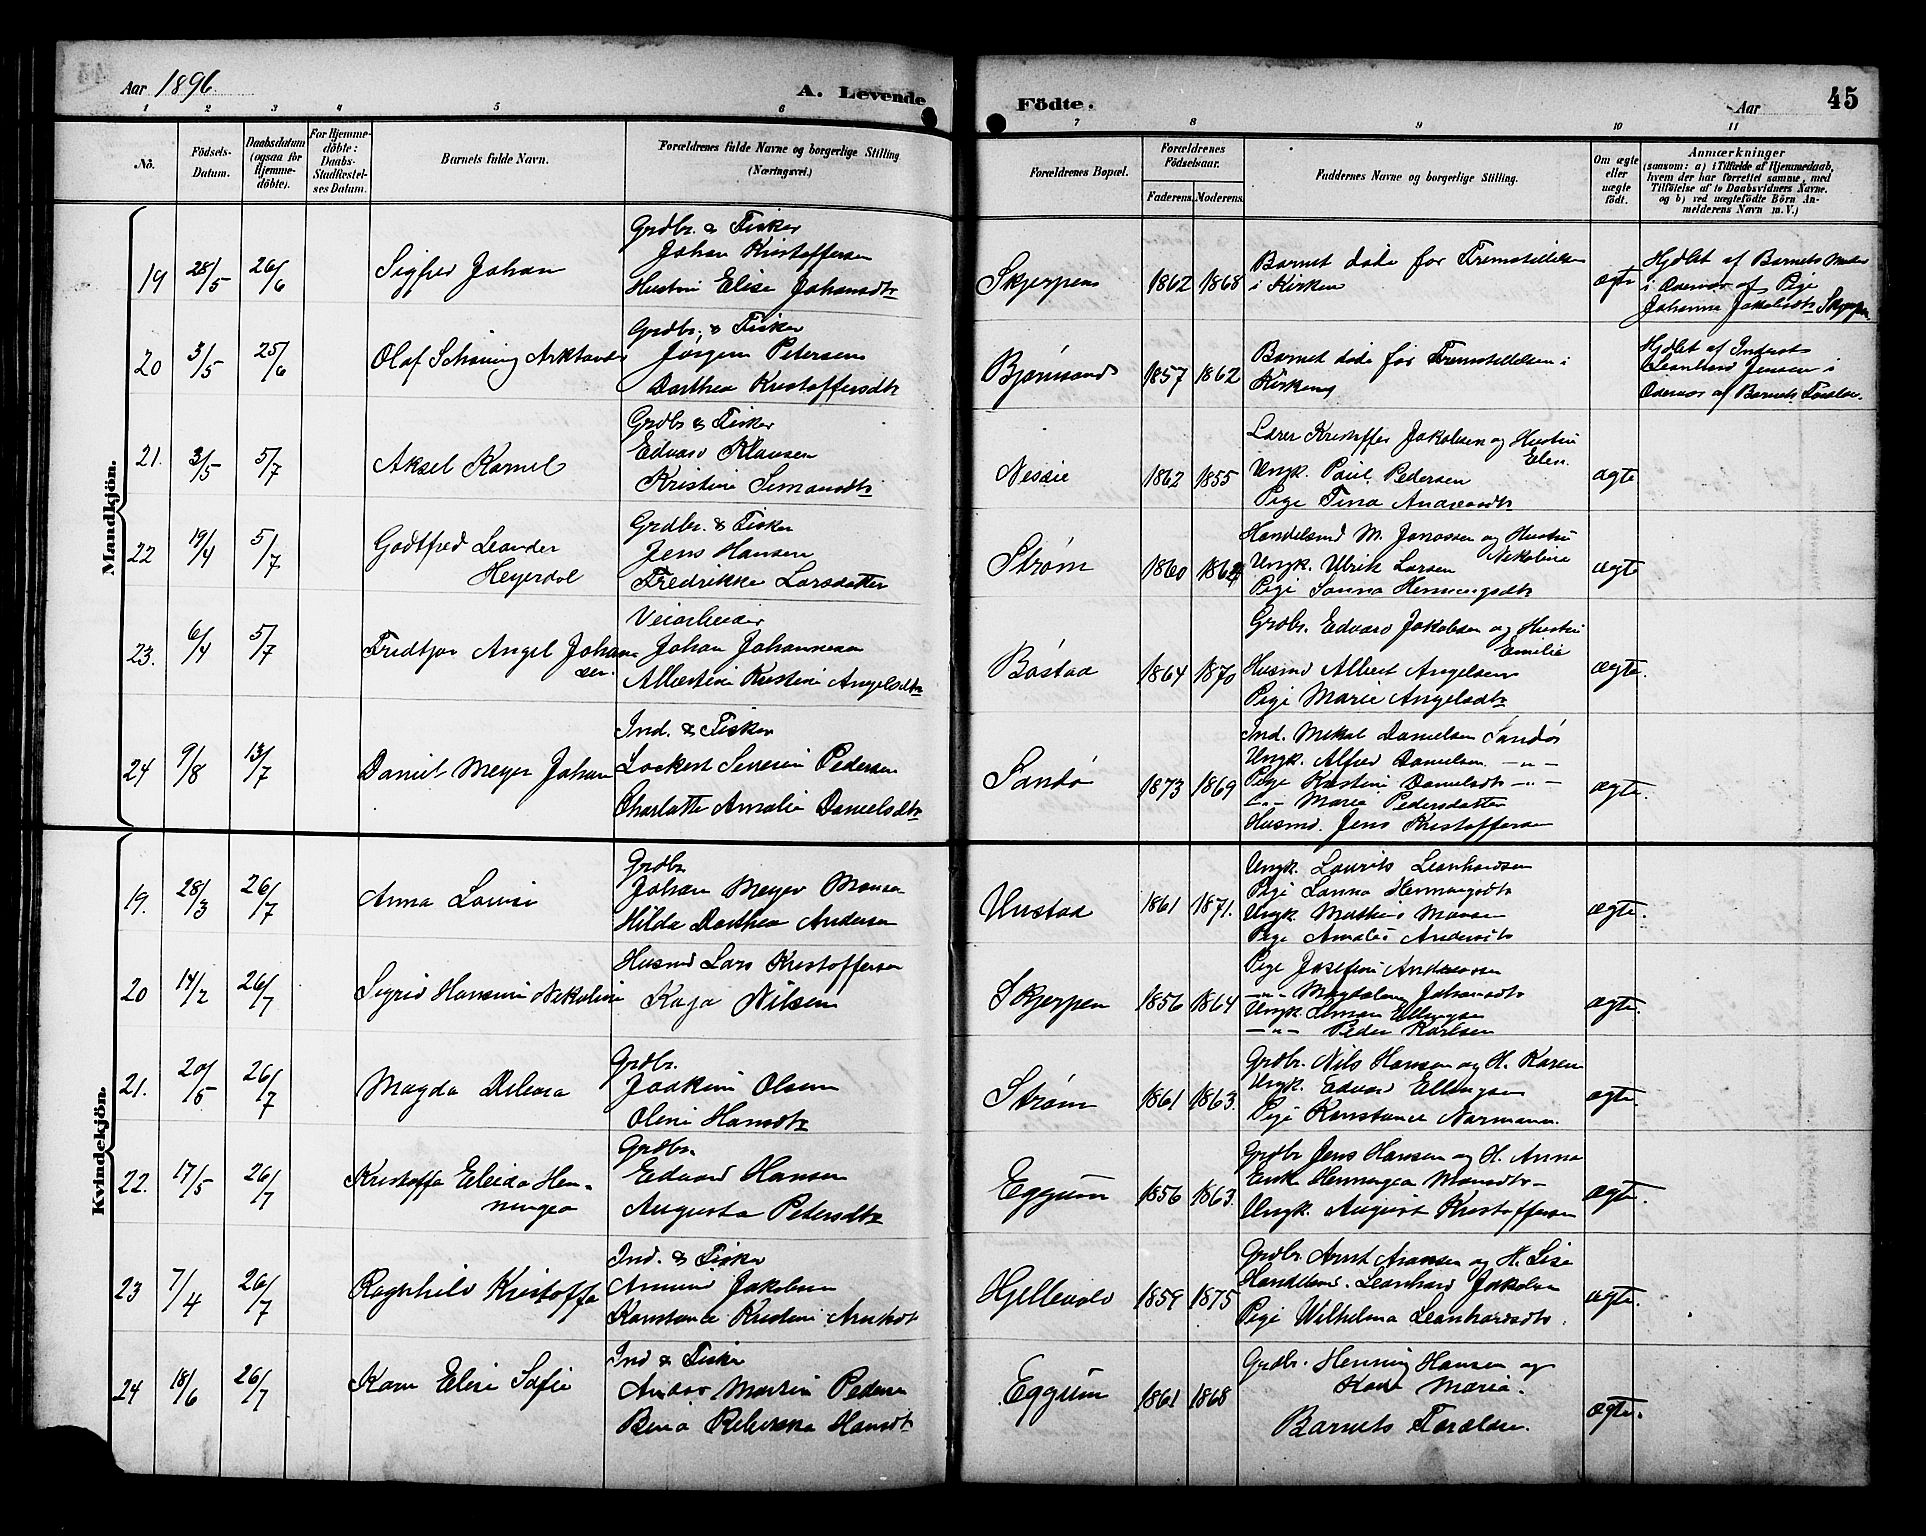 Aar 1896.
A. Levende
Födte.
Aar
45
1 2 3 4 5 6 7 8 9 10 11
No.
Födsels-Datum.
Daabsdatum (ogsaa for Hjemme-döbte).
For Hjemme-döbte: Daabs-Stadfæstel-ses Datum.
Barnets fulde Navn.
Forældrenes fulde Navne og borgerlige Stilling (Næringsvei.)
Forældrenes Bopæl.
Forældrenes Födselsaar.
Faderens. Moderens.
Faddernes Navne og borgerlige Stilling.
Om ægte eller uægte födt.
Anmærkninger
(saasom: a) i Tilfælde af Hjemmedaab, hvem der har forrettet samme, med Tilföielse af to Daabsvidners Navne. og b) ved uægtefödte Börn An-melderens Navn m. V.)
Mandkjön.
Grdbr. & Fisker
19 28/5 26/6 Sigfred Johan Johan Kristoffersen
Hustru Elise Johansdtr
Skjerpen 1862 1868 Barnet døde før Fremstillelsen
i Kirken
ægte
Hjdbt af Barnets Moder
i Overvær af Pige
Johanna Jakobsdtr Skjerpen.
Grdbr. & Fisker
20 3/5 25/6 Olaf Schøning Arktander Jørgen Petersen
Dorthea Kristoffersdtr
Bjørnsand 1857 1862 Barnet døde før Fremstillelsen i
Kirken
Hjdbt af Inderst
Leonhard Jensen i
Overvær af Barnets Foræld.
Grdbr & Fisker
21. 3/5 5/7 Aksel Kornel Edvard Klausen
Kristine Simonsdtr
Nesøie 1862 1855 Lærer Kristoffer Jakobsen og Hustru
Elen.
Ungk. Paul Pedersen
Pige Tina Andreasdtr
ægte
Grdbr. & Fisker
22 19/4 5/7 Godtfred Leander
Heyerdal
Jens Hansen
Fredrikke Larsdatter
Strøm 1860 Handelsmd M. Jonassen og Hustru
Nikoline
Ungk. Ulrik Larsen
Pige Sanna Henningsdtr
ægte
Veiarbeider
23. 6/4 5/7 Fredtjov Angel Johan-
sen.
Johan Johannesen
Albertine Kristine Angelsdtr
Bøstad 1864 1870 Grdbr. Edvard Jakobsen og Hustru
Emilie
Husmd Albert Angelsen
Pige Marie Angelsdtr
ægte.
Ind. & Fisker
24 9/8 13/7 Daniel Meyer Johan Lockert Severin Pedersen
Charlotte Amalie Danielsdtr
Sandø 1873 1869 Ind. Mikal Danielsen Sandø
Ungk. Alfred Danielsen -"-
Pige Kristine Danielsdtr -"-
-"- Maria Pedersdatter
Husmd. Jens Kristoffersen
ægte.
Kvindekjön.
Grdbr
19. 28/3 26/7 Anna Lovise Johan Meyer Monsen
Hilda Dorthea Andersen
Unstad 1861 1871. Ungk. Laurits Leonhardsen
Pige Sanna Henningsdtr
Ungk Mathias Monsen
Pige Amalie Andersdtr
ægte.
20 14/2 26/7 Sigrid Hansine Nikoline Husmd Lars Kristoffersen
Kaja Nilsen
Skjerpen 1856 1864 Pige Josefine Andreassen
-"- Magdalena Johansdtr
Ungk. Simon Ellingsen
-"- Peder Karlsen
ægte.
Grdbr.
21. 20/5 26/7 Magda Delena Joakim Olsen
Oline Hansdtr
Strøm 1861 1863. Grdbr. Nils Hansen og H. Karen
Ungk. Edvard Ellingsen
Pige Konstance Normann.
ægte.
Grdbr.
22. 17/5 26/7 Kristoffa Eleida Hen-
ningea
Edvard Hansen
Augusta Petersdtr
Eggum 1856 1863. Grdbr Jens Hansen og H. Anna
Enke Henningea Monsdtr
Ungk. August Kristoffersen
ægte.
Ind. & Fisker
23 7/4 26/7 Ragnhild Kristoffa Amund Jakobsen
Konstance Kristine Arntsdtr
Hjellevold 1859 1875 Grdbr. Arnt Aronsen og H. Lise
Handelsmd. Leonhard Jakobsen
Pige Wilhelma Leonhardsdtr.
ægte.
Ind & Fisker
24 18/6 26/7 Karen Elise Sofie Andor Martin Pedersen
Berta Rebekka Hansdtr
Eggum 1861 1868 Grdbr. Henning Hansen og
Kone Maria.
Barnets Forældre.
ægte.